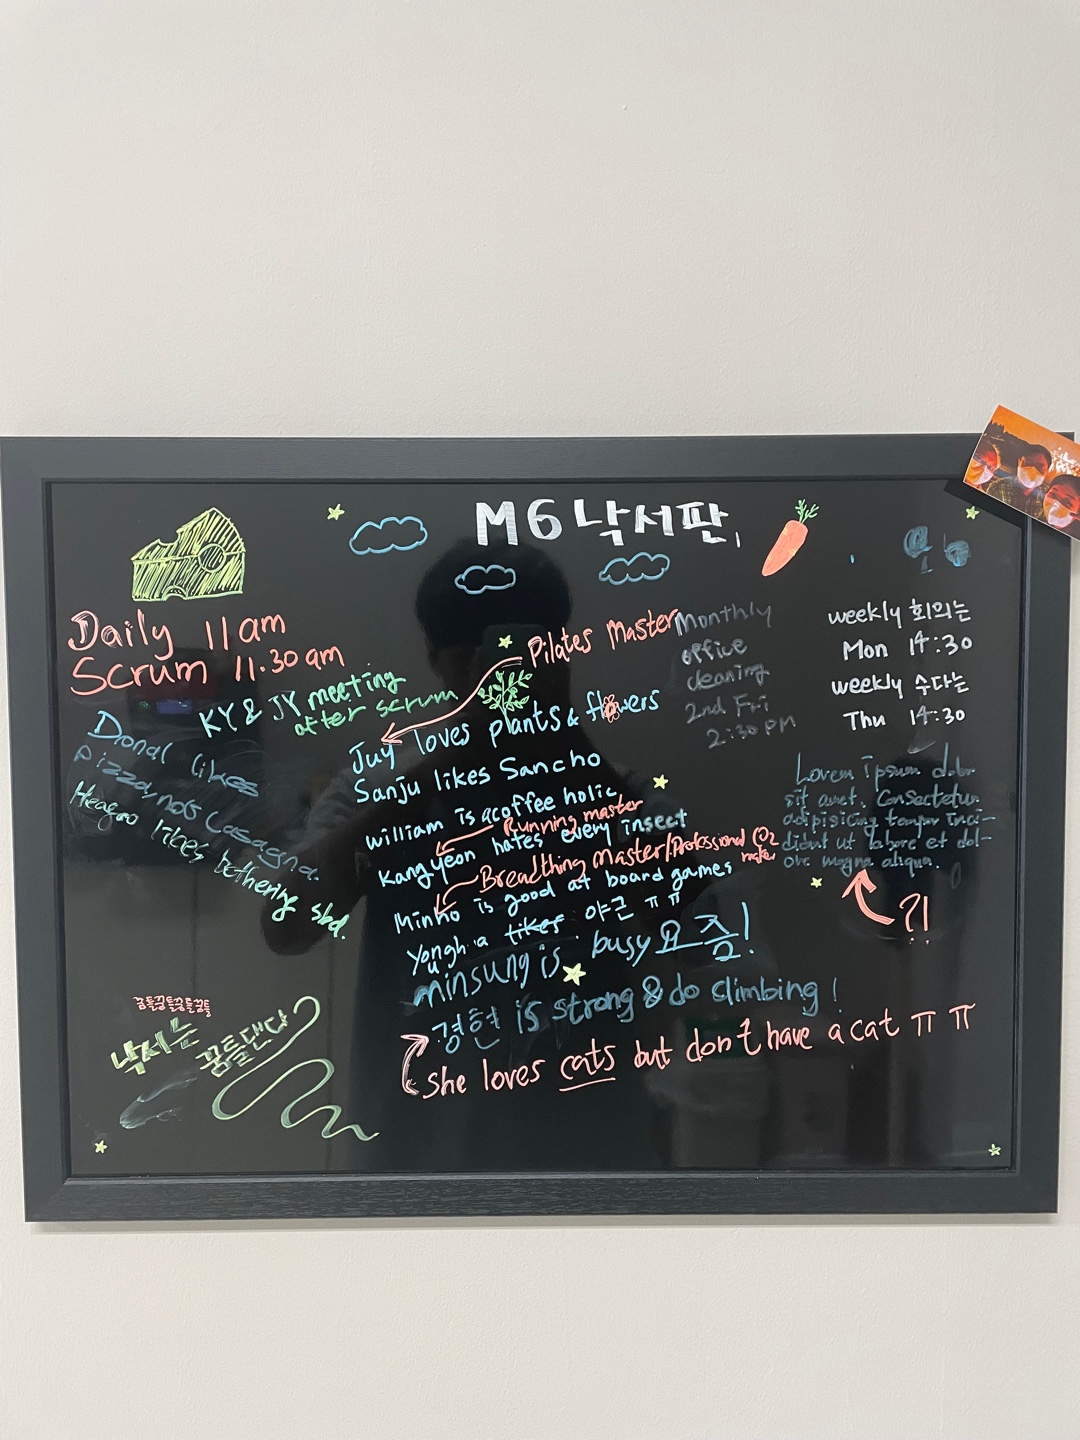 M6 낙서판,
Daily 11am
Scrum 11.30am
KY & JY meeting
after scrum
Donal likes
pizza, not Lasagna.
likes bothering sbd.
Pilates Master
Juy loves plants & flowers
Sanju likes Sancho
william is a coffee holic
Running master
Kangyeon hates every insect
Breathing Master/Professional CO2
maker
Minho is good at board games
Yongha likes 야근 ㅠㅠ
u
minsung is busy 요즘!
경현 is strong & do climbing!
she loves cats but don't have a cat ㅠㅠ
Monthly
office
cleaning
2nd Fri
2:30 PM
weekly 회의는
Mon 14:30
weekly 수다는
Thu 14:30
Lorem ipsum dolor
sit amet. Consectetur
adipisicing tempor inci-
didunt ut labore et dol-
ore magna aliqua.
?!
꿈틀꿈틀꿈틀꿈틀
낙서는
꿈틀댄다